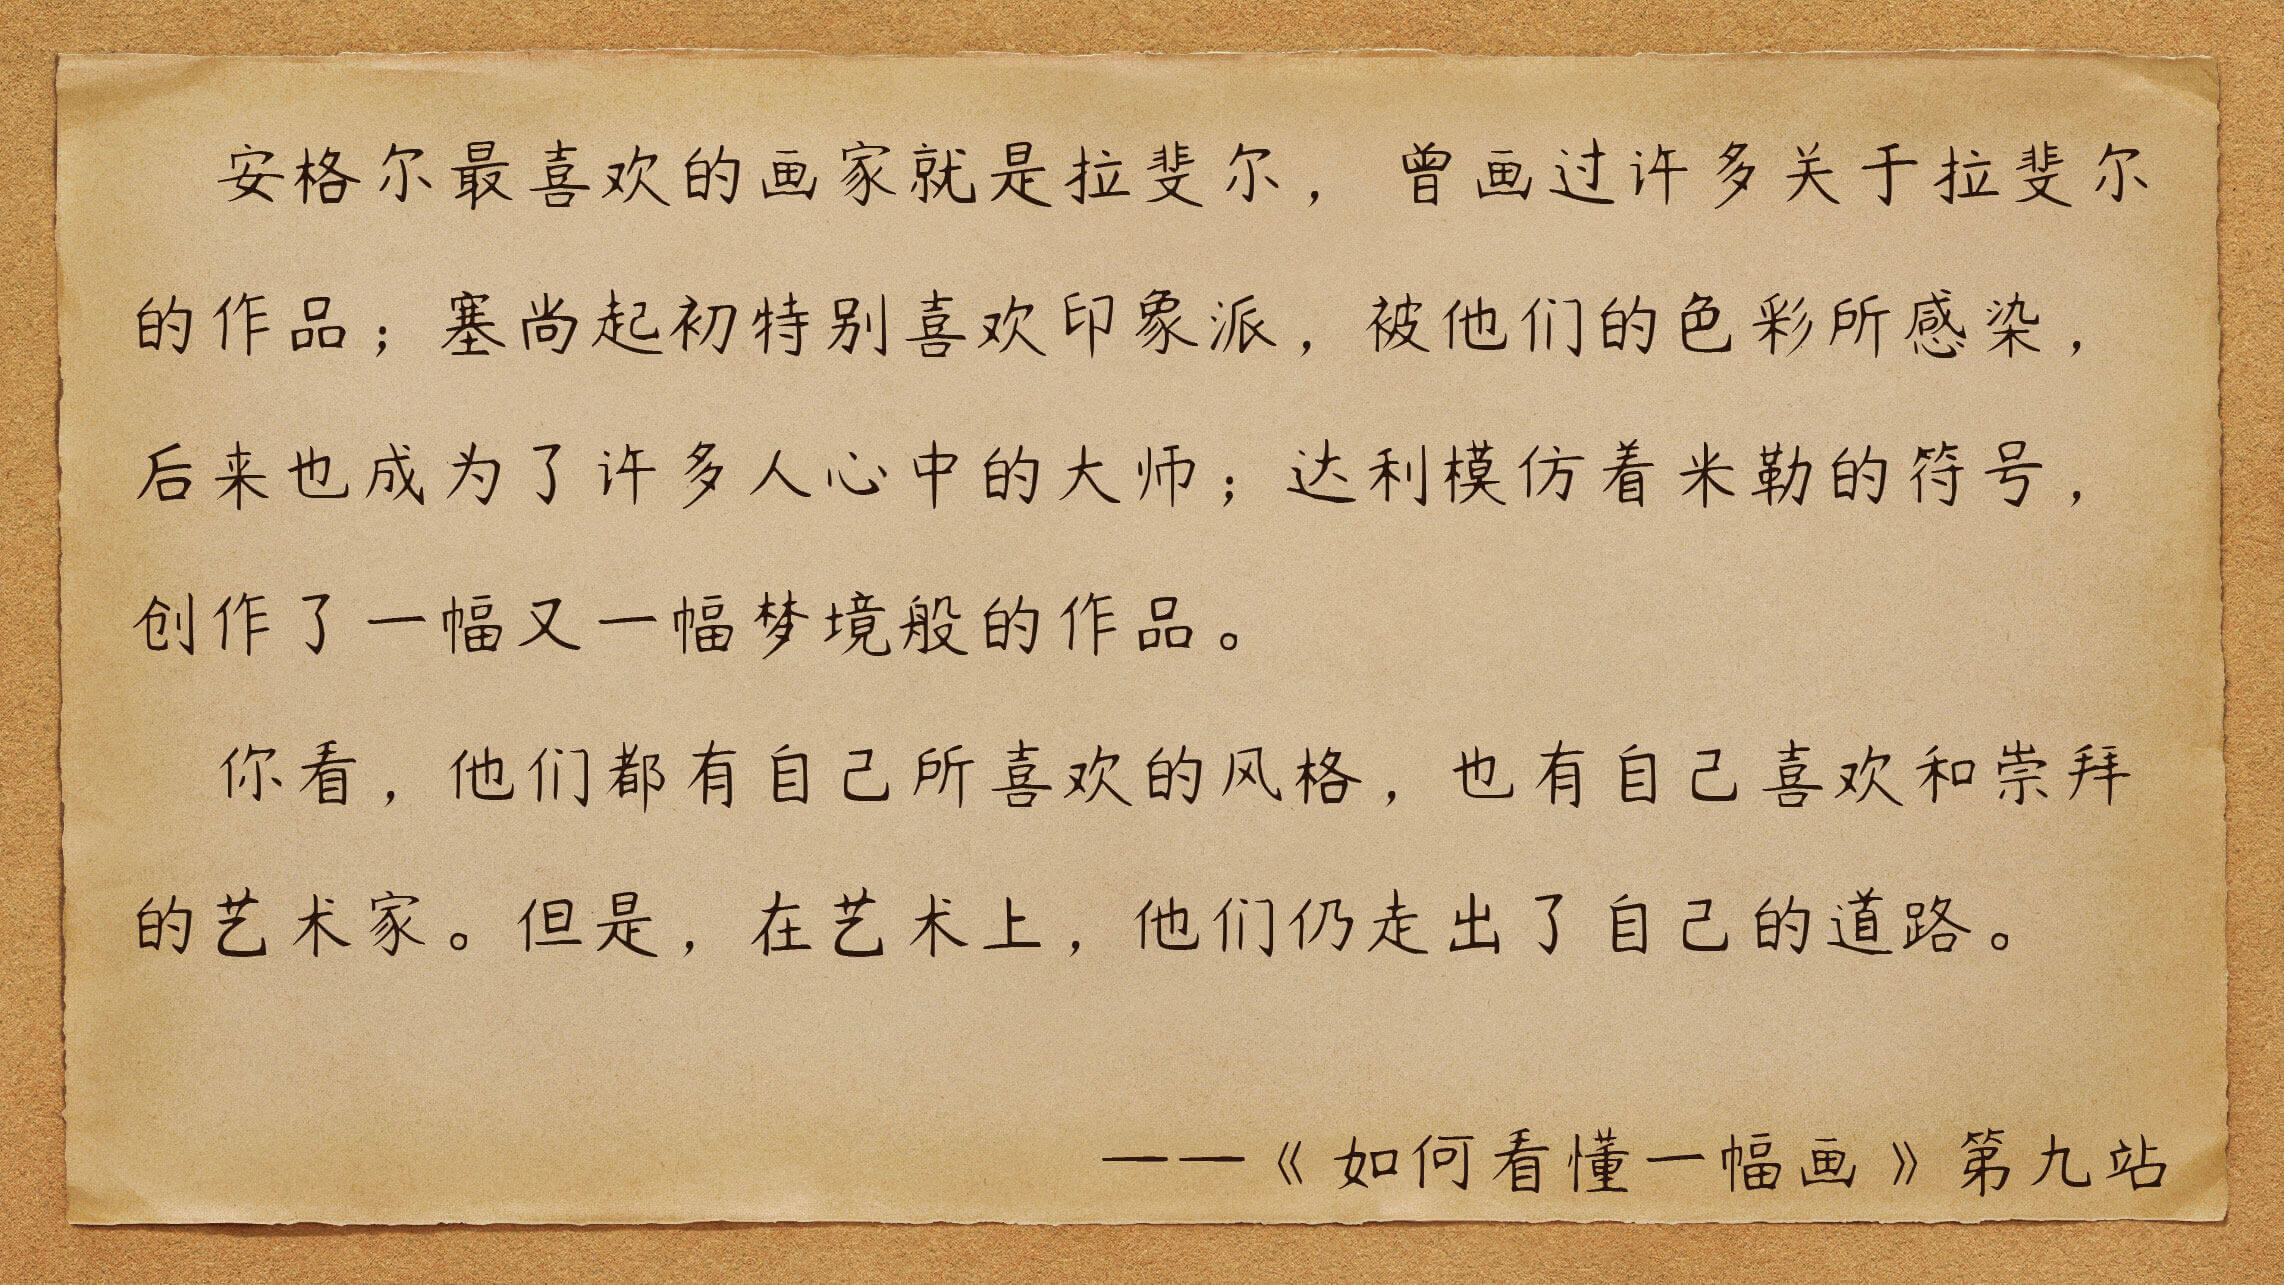 安格尔最喜欢的画家就是拉斐尔，曾画过许多关于拉斐尔
的作品；塞尚起初特别喜欢印象派，被他们的色彩所感染，
后来也成为了许多人心中的大师；达利模仿着米勒的符号，
创作了一幅又一幅梦境般的作品。
你看，他们都有自己所喜欢的风格，也有自己喜欢和崇拜
的艺术家。但是，在艺术上，他们仍走出了自己的道路。
——《如何看懂一幅画》第九站